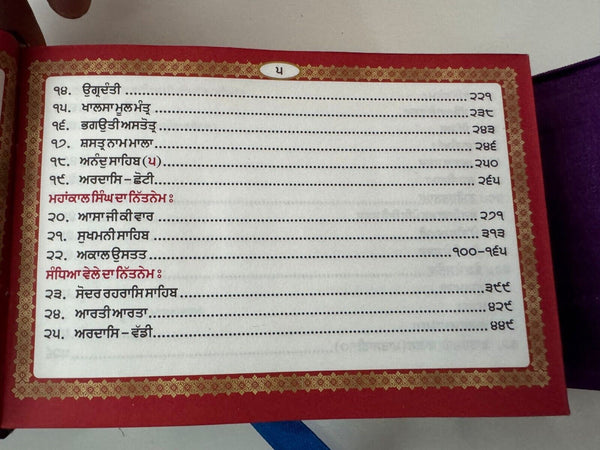 ੫
੧੪. ਉਗ੍ਰਦੰਤੀ ........ ੨੨੧
੧੫. ਖਾਲਸਾ ਮੂਲ ਮੰਤ੍ਰ ........ ੨੩੮
੧੬. ਭਗਉਤੀ ਅਸਤੋਤ੍ਰ ........ ੨੪੩
੧੭. ਸ਼ਸਤ੍ਰ ਨਾਮ ਮਾਲਾ ........ ੨੪੬
੧੮. ਅਨੰਦੁ ਸਾਹਿਬ (੫) ........ ੨੫੦
੧੯. ਅਰਦਾਸਿ – ਛੋਟੀ ........ ੨੬੫
ਮਹਾਂਕਾਲ ਸਿੰਘ ਦਾ ਨਿੱਤਨੇਮ :
੨੦. ਆਸਾ ਜੀ ਕੀ ਵਾਰ ........ ੨੭੧
੨੧. ਸੁਖਮਨੀ ਸਾਹਿਬ ........ ੩੧੩
੨੨. ਅਕਾਲ ਉਸਤਤ ........ ੧੦੦–੧੬੫
ਸੰਧਿਆ ਵੇਲੇ ਦਾ ਨਿੱਤਨੇਮ :
੨੩. ਸੋਦਰ ਰਹਰਾਸਿ ਸਾਹਿਬ ........ ੩੯੯
੨੪. ਆਰਤੀ ਆਰਤਾ ........ ੪੨੯
੨੫. ਅਰਦਾਸਿ – ਵੱਡੀ ........ ੪੪੯